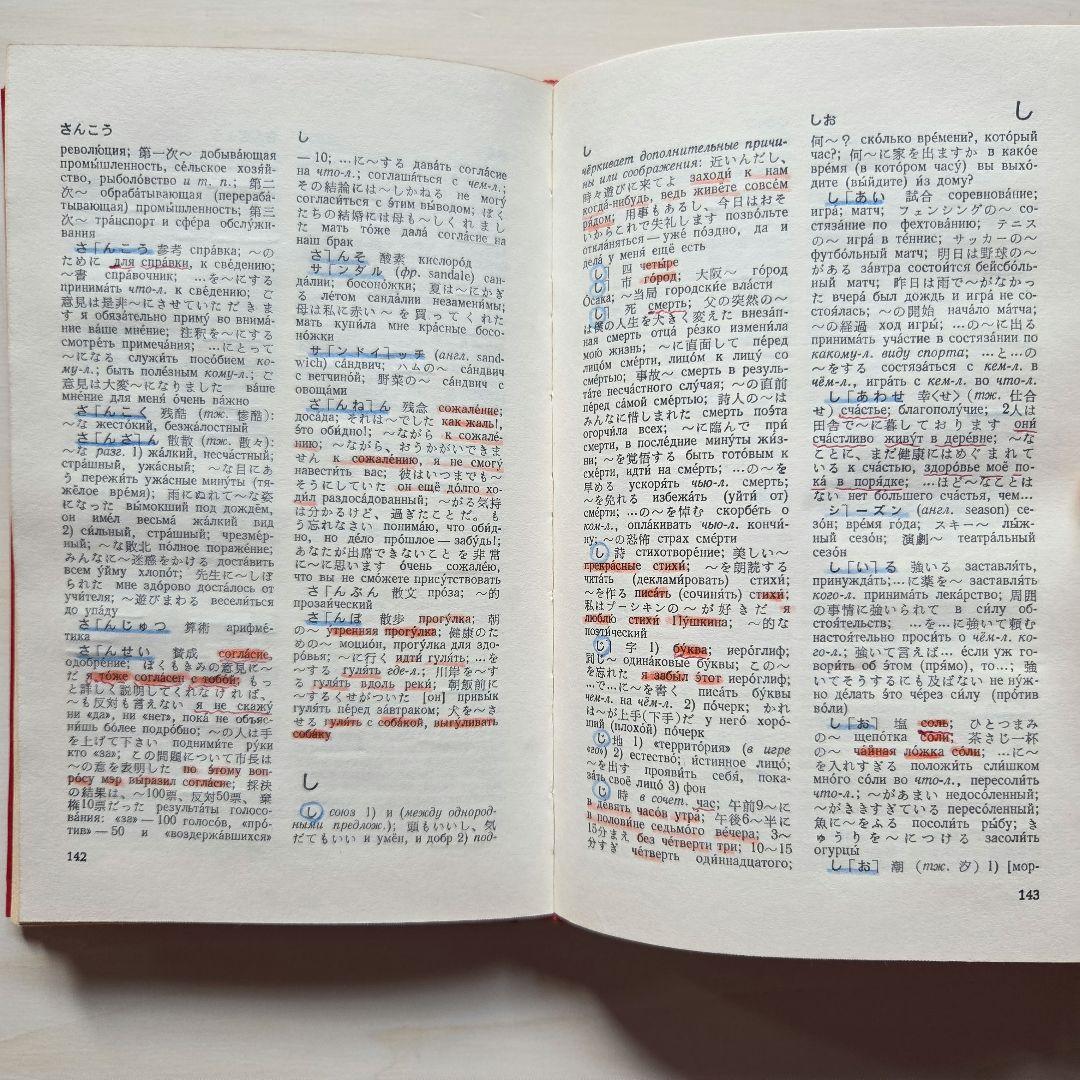 さんこう
революция; 第一次〜 добывающая
промышленность, сельское хозяй-
ство, рыболовство и т. п.; 第二
次〜 обрабатывающая (перераба-
тывающая) промышленность; 第三
次〜 транспорт и сфера обслужи-
вания
さ「んこう 参考 справка; 〜の
ために для справки, к сведению;
〜書 справочник; …を〜にする
принимать что-л. к сведению; ご
意見は是非〜にさせていただきま
す я обязательно приму во внима-
ние ваше мнение; 注釈を〜にする
смотреть примечания; …にとって
〜になる служить пособием ко-
му-л.; быть полезным кому-л.; ご
意見は大変〜になりました ваше
мнение для меня очень важно
さ「んこく 残酷 (тж. 惨酷):
〜な жестокий, безжалостный
さ「んざん 散散 (тж. 散々):
〜な разг. 1) жалкий, несчастный;
страшный, ужасный; 〜な目にあ
う пережить ужасные минуты (тя-
жёлое время); 雨にぬれて〜な姿
になった вымокший под дождём,
он имел весьма жалкий вид
2) сильный, страшный, чрезмер-
ный; 〜な敗北 полное поражение;
みんなに〜迷惑をかける доставить
всем уйму хлопот; 先生に〜しぼ
られた мне здорово досталось от
учителя; 〜遊びまわる веселиться
до упаду
さ「んじゅつ 算術 арифме-
тика
さ「んせい 賛成 согласие,
одобрение; ぼくもきみの意見に〜
だ я тоже согласен с тобой; もっ
と詳しく説明してくれなければ、
〜も反対も言えない я не скажу
ни «да», ни «нет», пока не объяс-
нишь более подробно; 〜の人は手
を上げて下さい поднимите руки
кто «за»; この問題について市長は
〜の意を表明した по этому воп-
росу мэр выразил согласие; 採決
の結果は、〜100票、反対50票、棄
権10票だった результаты голосо-
вания: «за» — 100 голосов, «про-
тив» — 50 и «воздержавшихся»
142
し
— 10; …に〜する давать согласие
на что-л.; соглашаться с чем-л.;
その結論には〜しかねる не могу
согласиться с этим выводом; ぼく
たちの結婚には母も〜しくれまし
た мать тоже дала согласие на
наш брак
さ「んそ 酸素 кислород
サ「ンダル (фр. sandale) сан-
далии; босоножки; 夏は〜にかぎ
る летом сандалии незаменимы;
母は私に赤い〜を買ってくれた
мать купила мне красные босо-
ножки
サ「ンドイ」ッチ (англ. sand-
wich) сандвич; ハムの〜 сандвич
с ветчиной; 野菜の〜 сандвич с
овощами
さ「んね」ん 残念 сожаление;
досада; それは〜でした как жаль!,
это обидно!; 〜ながら к сожале-
нию; 〜ながら、おうかがいできま
せん к сожалению, я не смогу
навестить вас; 彼はいつまでも〜
そうにしていた он ещё долго хо-
дил раздосадованный; 〜がる気持
は分かるけど、過ぎたことだ。も
う忘れなさい понимаю, что обид-
но, но дело прошлое — забудь!;
あなたが出席できないことを非常
に〜に思います очень сожалею,
что вы не сможете присутствовать
さ「んぶん 散文 проза; 〜的
прозаический
さ「んぽ 散歩 прогулка; 朝
の〜 утренняя прогулка; 健康のた
めの〜 моцион, прогулка для здо-
ровья; 〜に行く идти гулять; …を
〜する гулять где-л.; 川岸を〜す
る гулять вдоль реки; 朝飯前に
〜するくせがついた [он] привык
гулять перед завтраком; 犬を〜さ
せる гулять с собакой, выгуливать
собаку
し
し союз 1) и (между однород-
ными предлож.); 頭もいいし、気
だてもいい и умён, и добр 2) под-
し
чёркивает дополнительные причи-
ны или соображения: 近いんだし、
時々遊びに来てよ заходи к нам
когда-нибудь, ведь живёте совсем
рядом; 用事もあるし、今日はおそ
いからこれで失礼します позвольте
откланяться — уже поздно, да и
дела у меня ещё есть
し 四 четыре
し 市 город; 大阪〜 город
Осака; 〜当局 городские власти
し 死 смерть; 父の突然の〜
は僕の人生を大きく変えた внезап-
ная смерть отца резко изменила
мою жизнь; 〜に直面して перед
лицом смерти, лицом к лицу со
смертью; 事故〜 смерть в резуль-
тате несчастного случая; 〜の直前
перед самой смертью; 詩人の〜は
みんなに惜しまれた смерть поэта
огорчила всех; 〜に臨んで при
смерти, в последние минуты жиз-
ни; 〜を覚悟する быть готовым к
смерти, идти на смерть; …の〜を
早める ускорять чью-л. смерть;
〜を免れる избежать (уйти от)
смерти; …の〜を悼む скорбеть о
ком-л., оплакивать чью-л. кончи-
ну; 〜の恐怖 страх смерти
し 詩 стихотворение; 美しい〜
прекрасные стихи; 〜を朗読する
читать (декламировать) стихи;
〜を作る писать (сочинять) стихи;
私はプーシキンの〜が好きだ я
люблю стихи Пушкина; 〜的な
поэтический
じ 字 1) буква; иероглиф;
同じ〜 одинаковые буквы; この〜
を忘れた я забыл этот иероглиф;
…で…に〜を書く писать буквы
чем-л. на чём-л. 2) почерк; かれ
は〜が上手(下手)だ у него хоро-
ший (плохой) почерк
じ 地 1) «территория» (в игре
«го») 2) естество; истинное лицо;
〜を出す проявить себя, пока-
зать своё лицо 3) фон
じ 時 в сочет. час; 午前9〜に
в девять часов утра; 午後6〜半に
в половине седьмого вечера; 3〜
15分まえ без четверти три; 10〜15
分すぎ четверть одиннадцатого;
しお
し
何〜? сколько времени?, который
час?; 何〜に家を出ますか в какое
время (в котором часу) вы выхо-
дите (выйдите) из дому?
し「あい 試合 соревнование;
игра; матч; フェンシングの〜 со-
стязание по фехтованию; テニス
の〜 игра в теннис; サッカーの〜
футбольный матч; 明日は野球の〜
がある завтра состоится бейсболь-
ный матч; 昨日は雨で〜がなかっ
た вчера был дождь и игра не со-
стоялась; 〜の開始 начало матча;
〜の経過 ход игры; …の〜に出る
принимать участие в состязании по
какому-л. виду спорта; …と…の
〜をする состязаться с кем-л. в
чём-л., играть с кем-л. во что-л.
し「あわせ 幸くせ〉 (тж. 仕合
せ) счастье; благополучие; 2人は
田舎で〜に暮しております они
счастливо живут в деревне; 〜な
ことに、まだ健康にはめぐまれて
いる к счастью, здоровье моё по-
ка в порядке; …ほど〜なことは
ない нет большего счастья, чем…
シ「ーズン (англ. season) се-
зон; время года; スキー〜 лыж-
ный сезон; 演劇〜 театральный
сезон
し「い」る 強いる заставлять,
принуждать; …に薬を〜 заставлять
кого-л. принимать лекарство; 周囲
の事情に強いられて в силу об-
стоятельств; …を…に強いて頼む
настоятельно просить о чём-л. ко-
го-л.; 強いて言えば… если уж го-
ворить об этом (прямо), то…; 強い
てそうするにも及ばない не нуж-
но делать это через силу (против
воли)
し「お」 塩 соль; ひとつまみ
の〜 щепотка соли; 茶さじ一杯
の〜 чайная ложка соли; …に〜
を入れすぎる положить слишком
много соли во что-л., пересолить
что-л.; 〜があまい недосоленный;
〜がききすぎている пересоленный;
魚に〜をふる посолить рыбу; き
ゅうりを〜につける засолить
огурцы
し「お」 潮 (тж. 汐) 1) [мор-
143